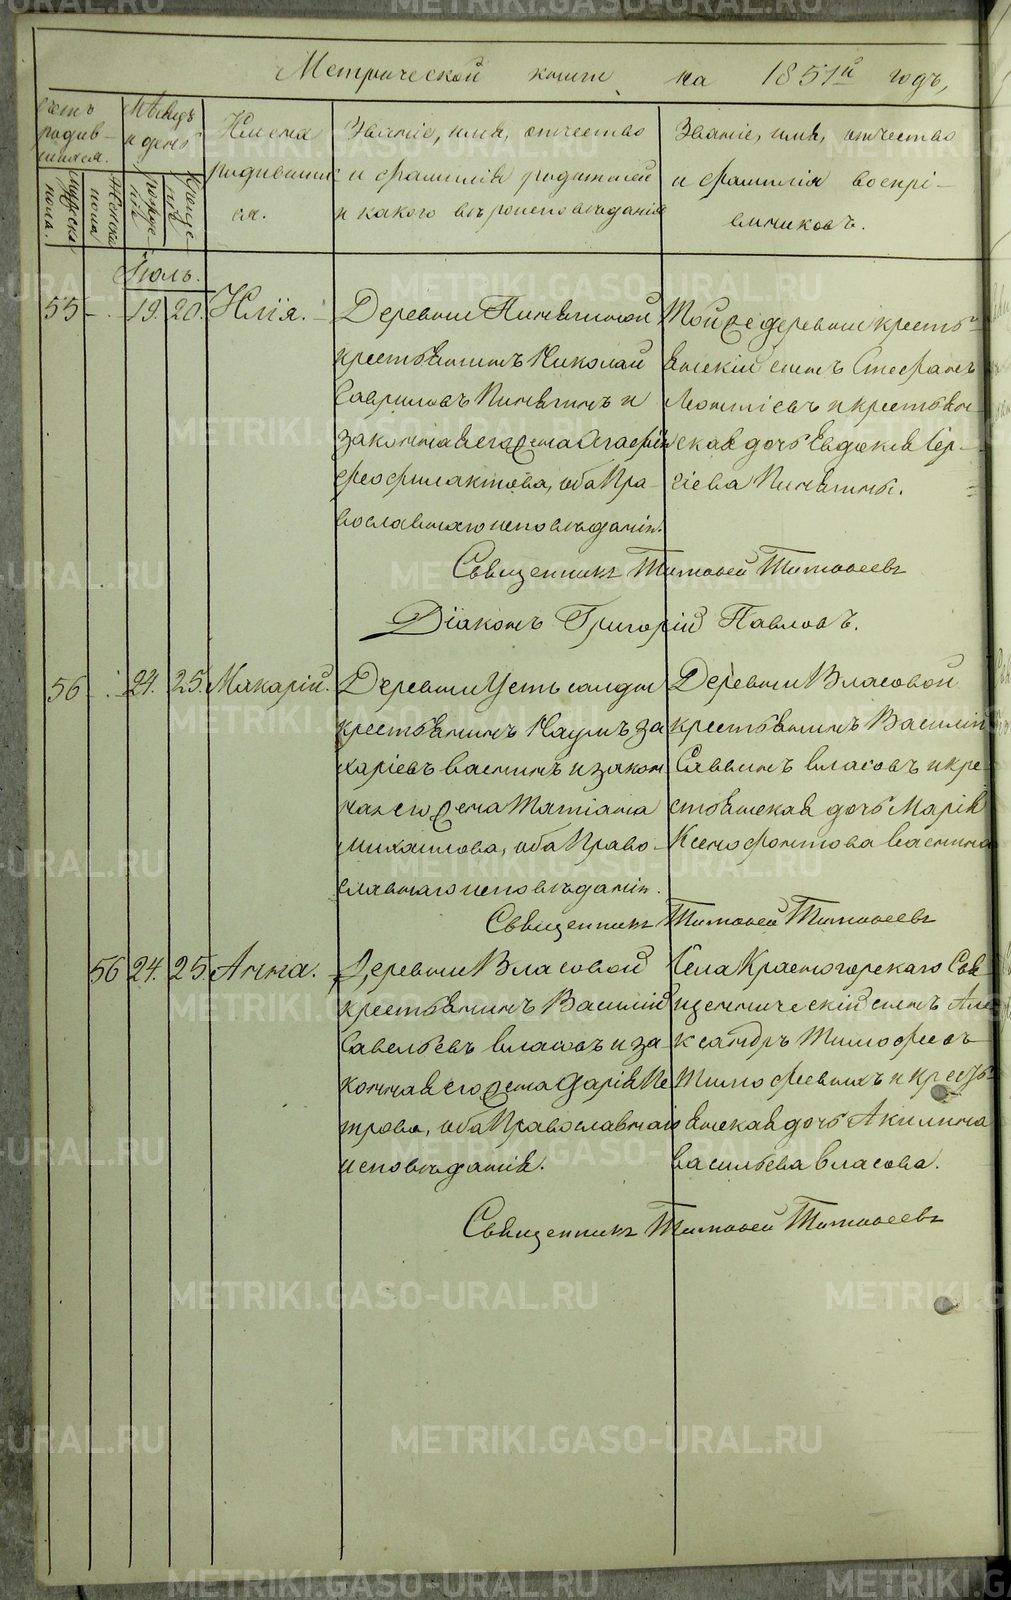 Метрической книги на 1851й годъ,
Счетъ родив-шихся.
Мѣсяцъ и день
Имена родившихся.
Званіе, имя, отчество и фамилія родителей и какого вѣроисповѣданія
Званіе, имя, отчество и фамилія воспріемниковъ.
Мужеска пола.
Женска пола
рожденія
крещенія
Іюль.
55 19. 20. Илія.
Деревни Пинягиной
крестьянинъ Николай
Гавриловъ Пинягинъ и
законная его жена Агафія
Феофилактова, оба Пра-
вославнаго исповѣданія.
Той же деревни кресть-
янскій сынъ Стефанъ
и крестьян-
ская дочь Евдокія Сер-
гіева Пинягины.
Священникъ Тимофей Тимофеевъ
Діаконъ Григорій Павловъ.
56 24. 25. Макарій.
Деревни Усть салды
крестьянинъ Наумъ За
харіевъ Васнинъ и закон
ная его жена Татіана
Михайлова, оба Право-
славнаго исповѣданія.
Деревни Власовой
крестьянинъ Василій
Саввинъ Власовъ и кре-
стьянская дочь Марія
Ксенофонтова Васнина
Священникъ Тимофей Тимофеевъ
56 24. 25. Анна.
Деревни Власовой
крестьянинъ Василій
Савельевъ Власовъ и за
конная его жена Дарія Пе
трова, оба Православнаго
исповѣданія.
Села Красногорскаго Свя
щенническій сынъ Але
ксандръ Тимофеевъ
Тимофеевыхъ и кресть-
янская дочь Акилина
Васильева Власова.
Священникъ Тимофей Тимофеевъ
METRIKI.GASO-URAL.RU